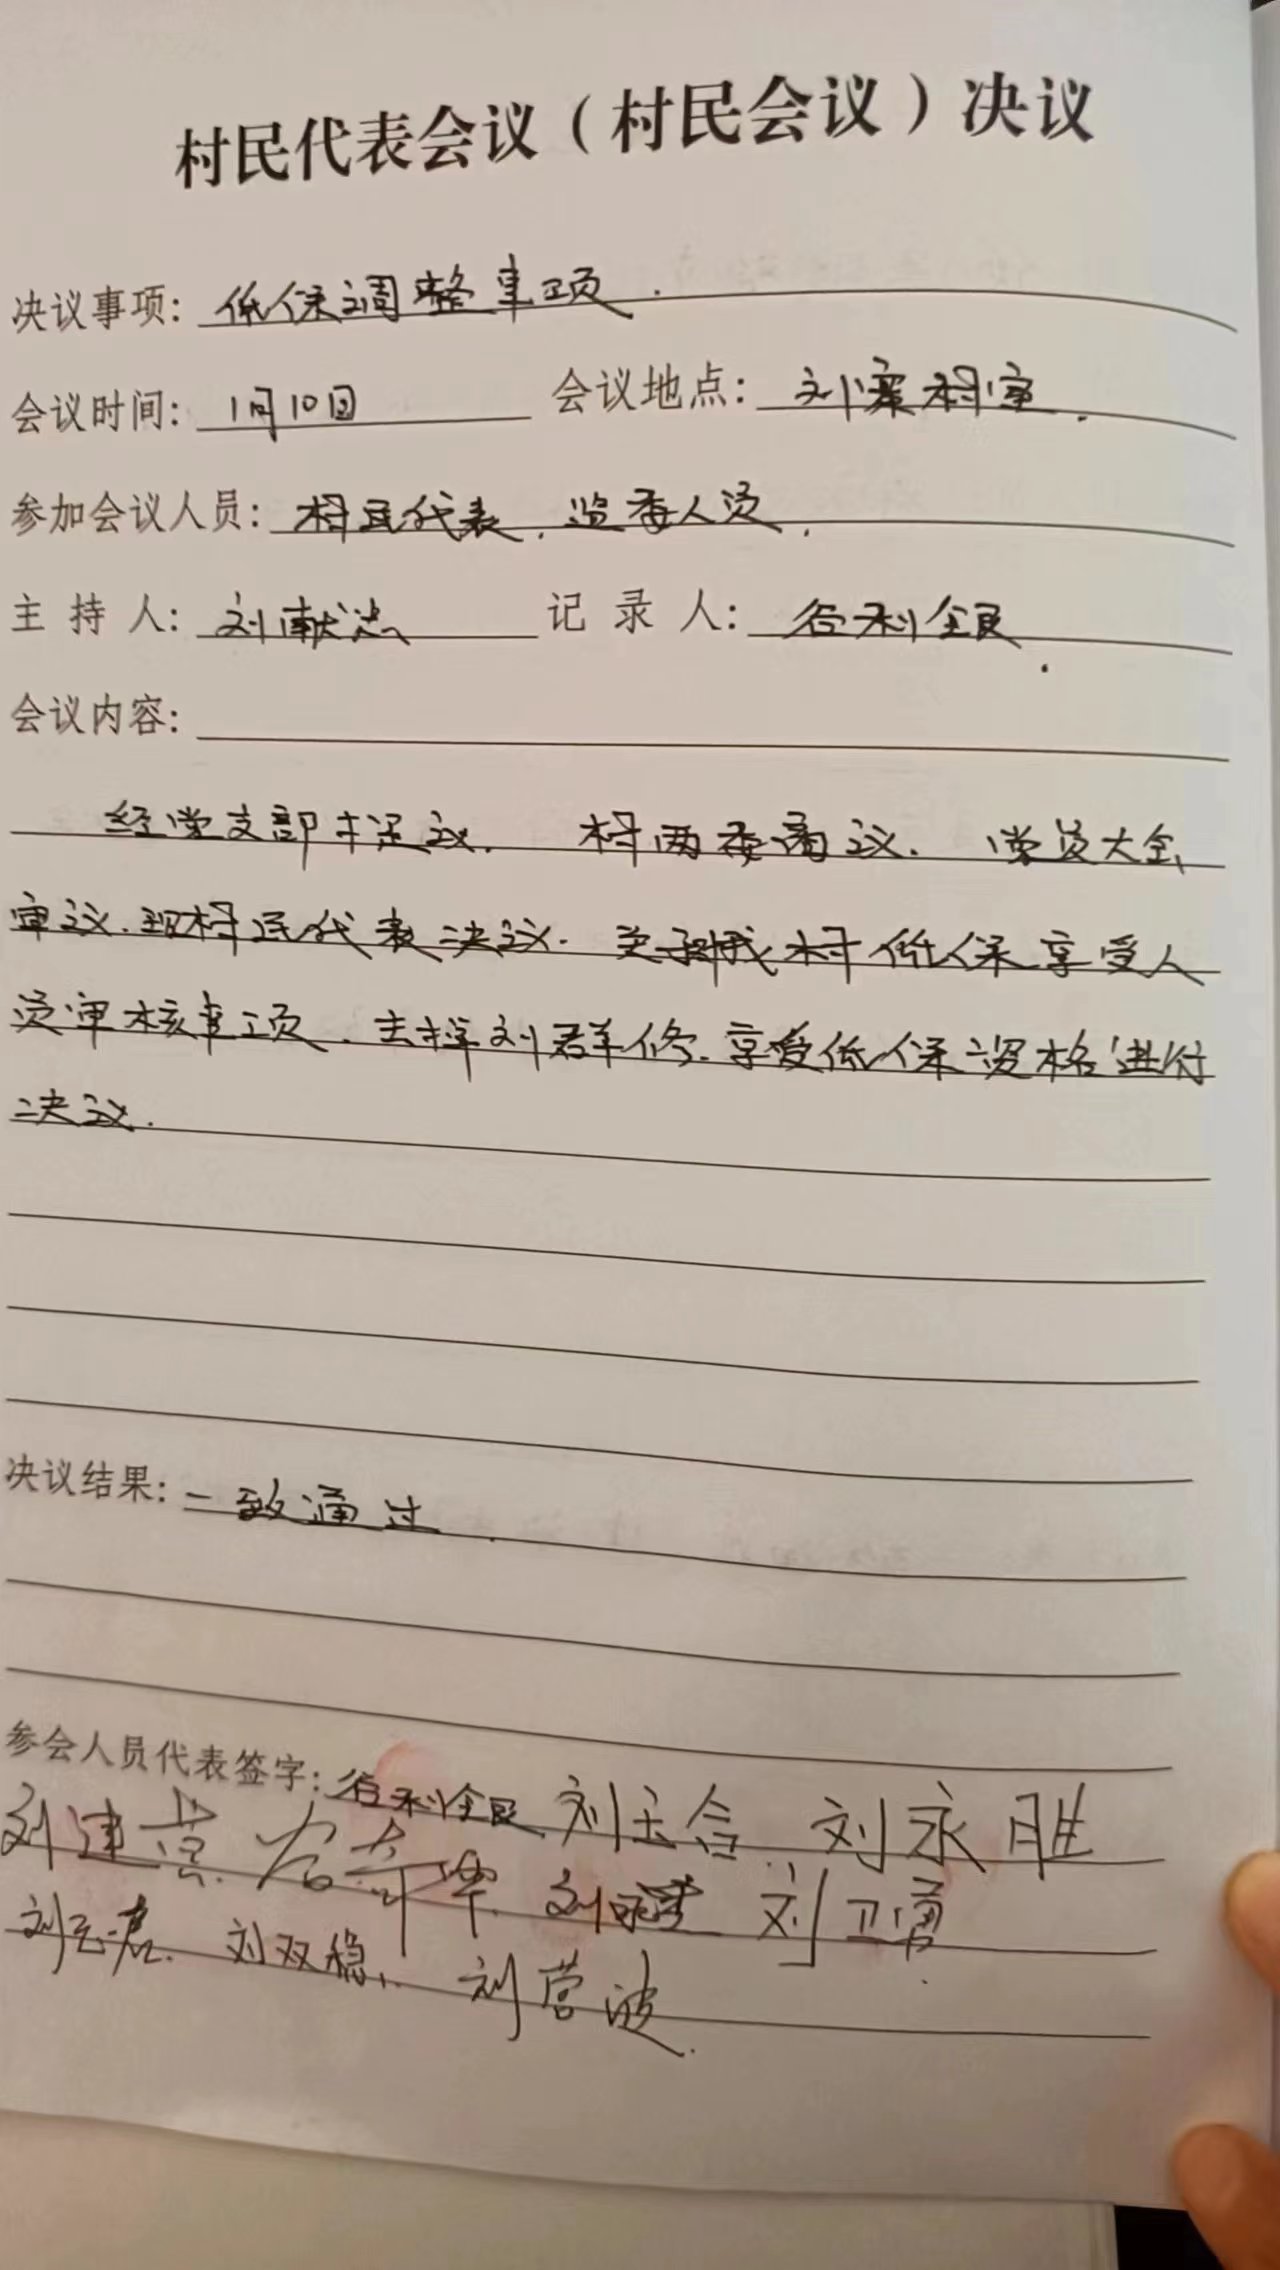 村民代表会议（村民会议）决议
决议事项：低保调整事项.
会议时间：1月10日 会议地点：刘寨村室.
参加会议人员：村民代表、监委人员.
主 持 人：刘献忠 记 录 人：谷利银.
会议内容：
经党支部提议. 村两委商议. 党员大会
审议.现村民代表决议. 关于我村低保享受人
员审核事项、主持刘群修.享受低保资格进行
决议.
决议结果：一致通过.
参会人员代表签字：谷利银 刘玉合 刘永胜
刘建 谷 华 刘 刘卫勇
刘 刘双稳 刘营波